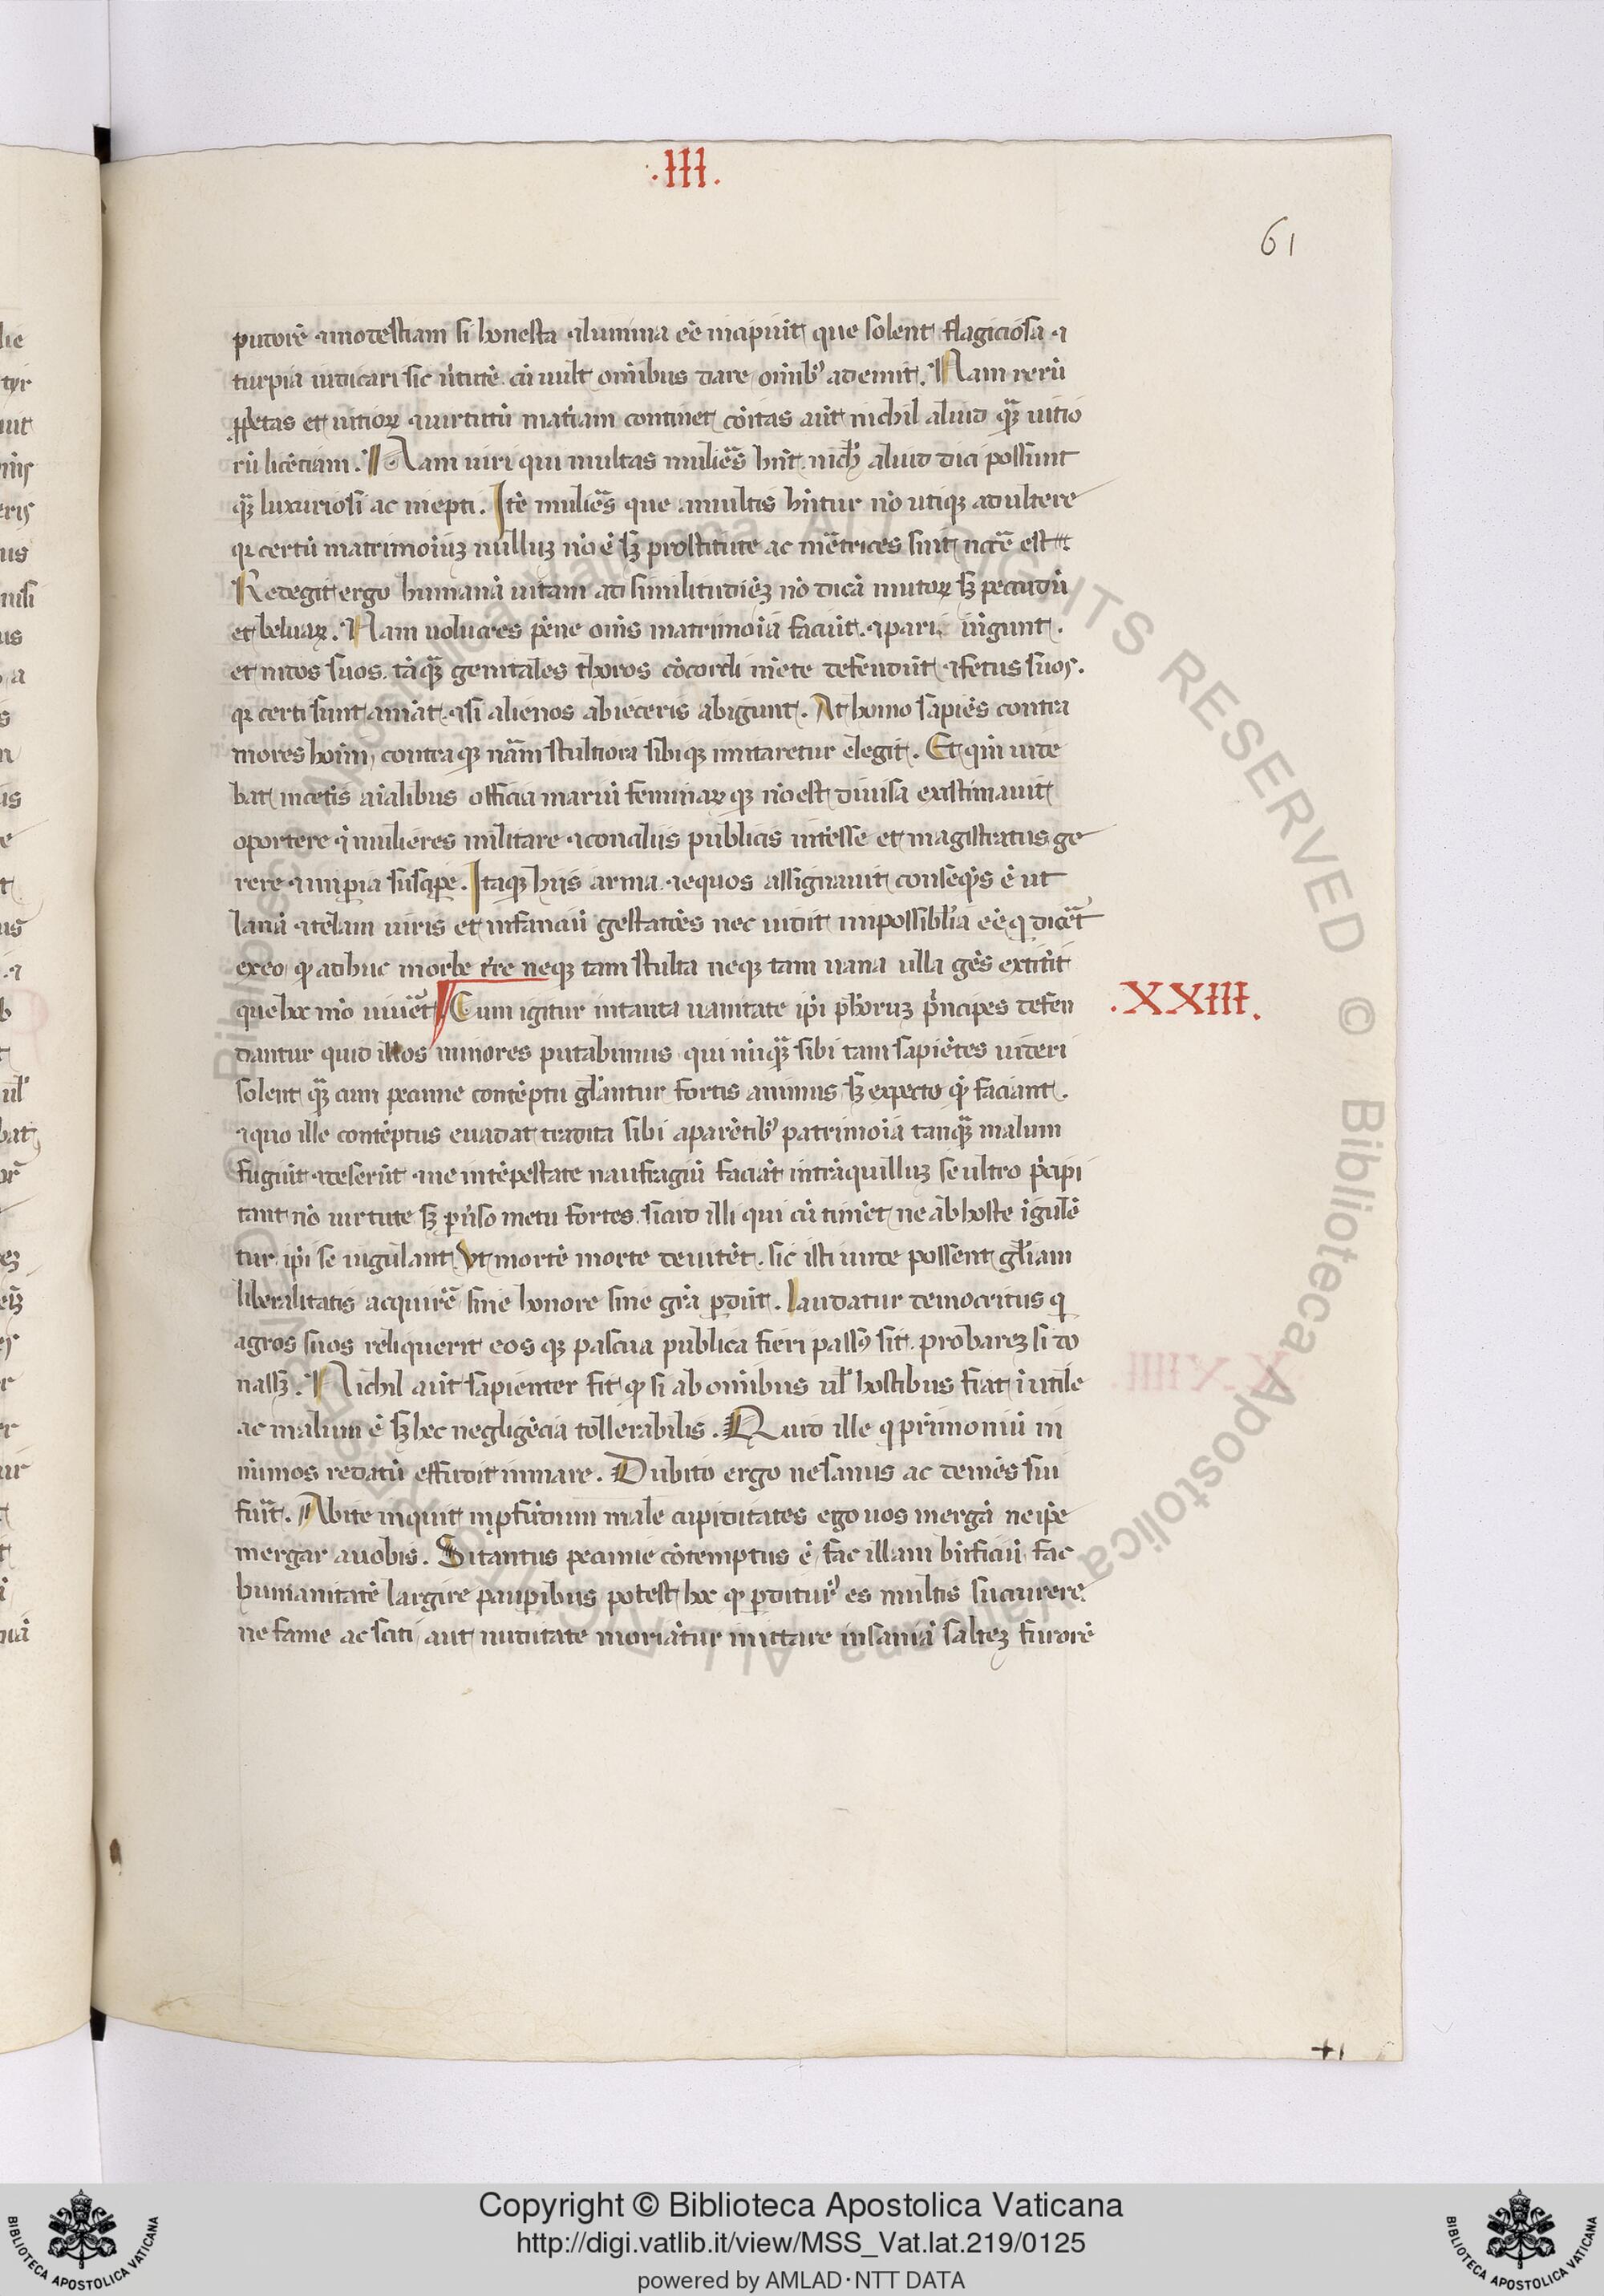 .III.
61
pudorē ⁊ modestiam si honesta ⁊ lumina eē incipiūt que solent flagiciosa ⁊
turpia iudicari sic ūtutē cū uult om̄ibus dare om̄ib⁹ ademit. Nam rerū
ꝓp̄etas et uitioꝝ ⁊ uirtutū mat̄iam continet cōitas aūt nichil aliud qꝫ uitio
rū licētiam. Nam uiri qui multas mulier̄s hn̄t nich̄ aliud dici possunt
qꝫ luxuriosi ac inepti. Itē mulier̄s que amultis hn̄tur nō utiqꝫ adultere
qꝛ certū matrimoīuꝫ nulluꝫ nō ē sꝫ prostitute ac mēetrices sint necc̄e est
Redegit ergo humanā uitam ad similitudiēꝫ nō dicā mutoꝝ sꝫ pecudū
et beluaꝝ. Nam uolucres pēne om̄s matrimoīa faciūt. ⁊ pari iūgunt.
et nidos suos. tāqꝫ genitales thoros cōcordi mēte defendūt ⁊ fetus suos.
qꝛ certi sunt amāt. ⁊ si alienos abieceris abigunt. At homo sapiēs contra
mores hoīm, contraqꝫ nām stultiora sibi qꝫ imitaretur elegit. Et qm̄ uide
bat incet̄is aīalibus officia mariū feminaꝝ qꝫ nō est diuisa existimauit
oportere ⁊ mulieres militare ⁊ conciliis publicis int̄esse et magistratus ge
rere ⁊ imꝑia suscipe. Itaqꝫ hiis arma ⁊ equos assignauit conseqn̄s ē ut
lanā ⁊ telam uiris et infanciū gestatōēs nec uidit impossibl̄ia eē q̄ dicēt̄
ex eo ꝙ adhuc in orbe t̄re neqꝫ tam stulta neqꝫ tam uana ulla gēs extitit
que hoc mō uiuēt̄ Cum igitur intanta uanitate ip̄i ph̄oruꝫ p̄ncipes defen
.XXIII.
dantur quid illos minores putabimus qui nūqꝫ sibi tam sapiētes uideri
solent qꝫ cum pecunie contēptu gl̄antur fortis animus sꝫ expecto qd̄ faciant.
⁊ quo ille contēptus euadat tradita sibi aparētib⁹ patrimoīa tanqꝫ malum
fugiūt ⁊ deserūt ⁊ ne intēpestate naufragiū faciāt intrāquilluꝫ se ultro p̄cipi
tant nō uirtute sꝫ ꝑuerso metu fortes. sicud illi qui cū timēt ne ab hoste iugulē
tur ip̄i se iugulant Vt mortē morte deuitēt. sic isti unde possent gl̄iam
liberalitatis acquirē sine honore sine gr̄a ꝑdūt. laudatur democritus ꝙ
agros suos reliquerit eos qꝫ pascua publica fieri pass⁹ sit. probareꝫ si do
nassꝫ. Nichil aūt sapienter fit ꝙ si ab om̄ibus ul̄ hostibus fiat iutile
ac malum ē sꝫ hec negligēcia tollerabilis. Quid ille q̄ pr̄imoniū in
nūmos redatū effudit inmare. Dubito ergo ne sanus ac demēs sui
fuit̄. Abite inquit inꝓfūdum male cupiditates ego uos mergā ne ip̄e
mergar auobis. Si tantus pecunie cōtemptus ē fac illam bn̄ficiū fac
humanitatē largire pauꝑibus potest hoc ꝙ ꝑditur⁹ es multis sucurrere
ne fame ac siti aut nuditate moriātur imitare insaniā salteꝫ furorē
+1
Copyright © Biblioteca Apostolica Vaticana
http://digi.vatlib.it/view/MSS_Vat.lat.219/0125
powered by AMLAD·NTT DATA